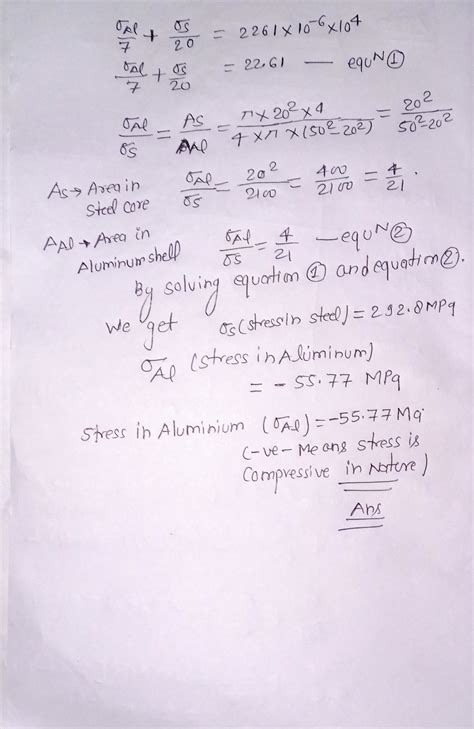 σAl/7 + σs/20 = 2261×10^-6×10^4
σAl/7 + σs/20 = 22.61 — equN①
σAl/σs = As/AAl = π×20²×4/4×π×(50²-20²) = 20²/50²-20²
As → Area in Steel core
σAl/σs = 20²/2100 = 400/2100 = 4/21.
AAl → Area in Aluminum shell
σAl/σs = 4/21 — equN②
By solving equation ① and equation②.
We get σs (stress in steel) = 292.8 MPa
σAl (stress in Aluminum)
= - 55.77 MPa
Stress in Aluminium (σAl) = -55.77 Ma
(-ve - Means stress is
Compressive in Nature)
Ans